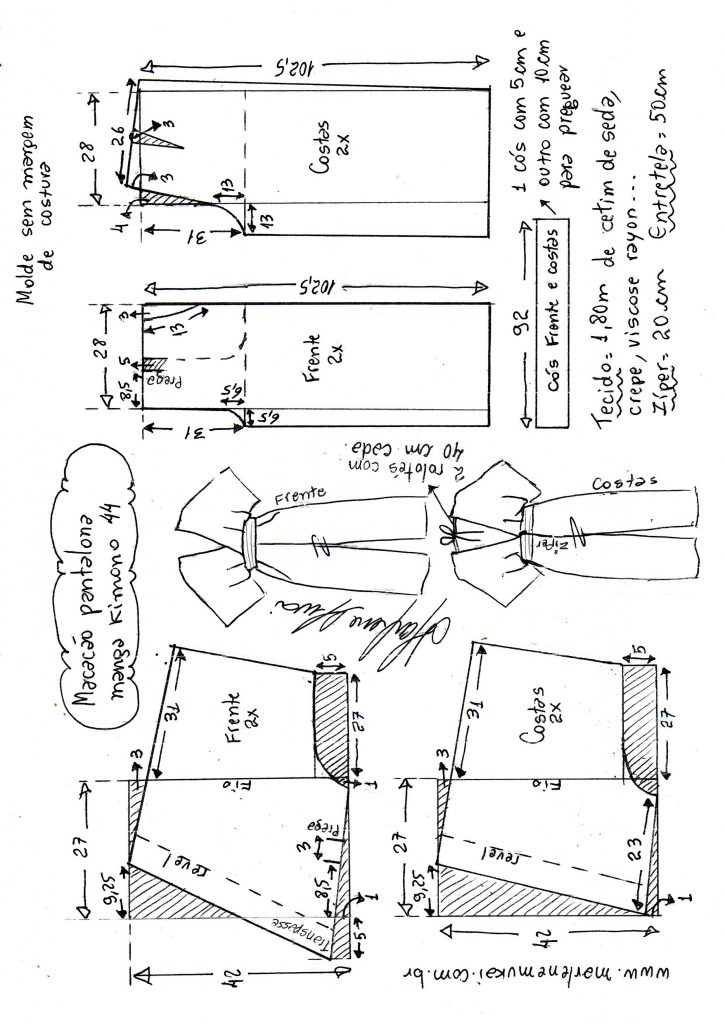 Macacão pantalona
manga Kimono 44
Molde sem margem
de costura
28
31
8,5
Prega
5
3
13
6,5
6,5
Frente
2x
102,5
28
26
4
3
3
31
13
13
Costas
2x
102,5
92
Cós Frente e costas
1 cós com 5 cm e
outro com 10 cm
para preguear
Tecido = 1,80m de cetim de seda,
crepe, viscose rayon...
Zíper = 20 cm Entretela = 50 cm
Frente
2 rolotês com
40 cm cada.
Zíper
Costas
27
9,25
3
31
Frente
2x
Fio
revel
Transpasse
Prega
3
8,5
5
1
1
27
5
42
27
9,25
3
31
Costas
2x
Fio
revel
23
1
27
5
42
www.marlenemukai.com.br